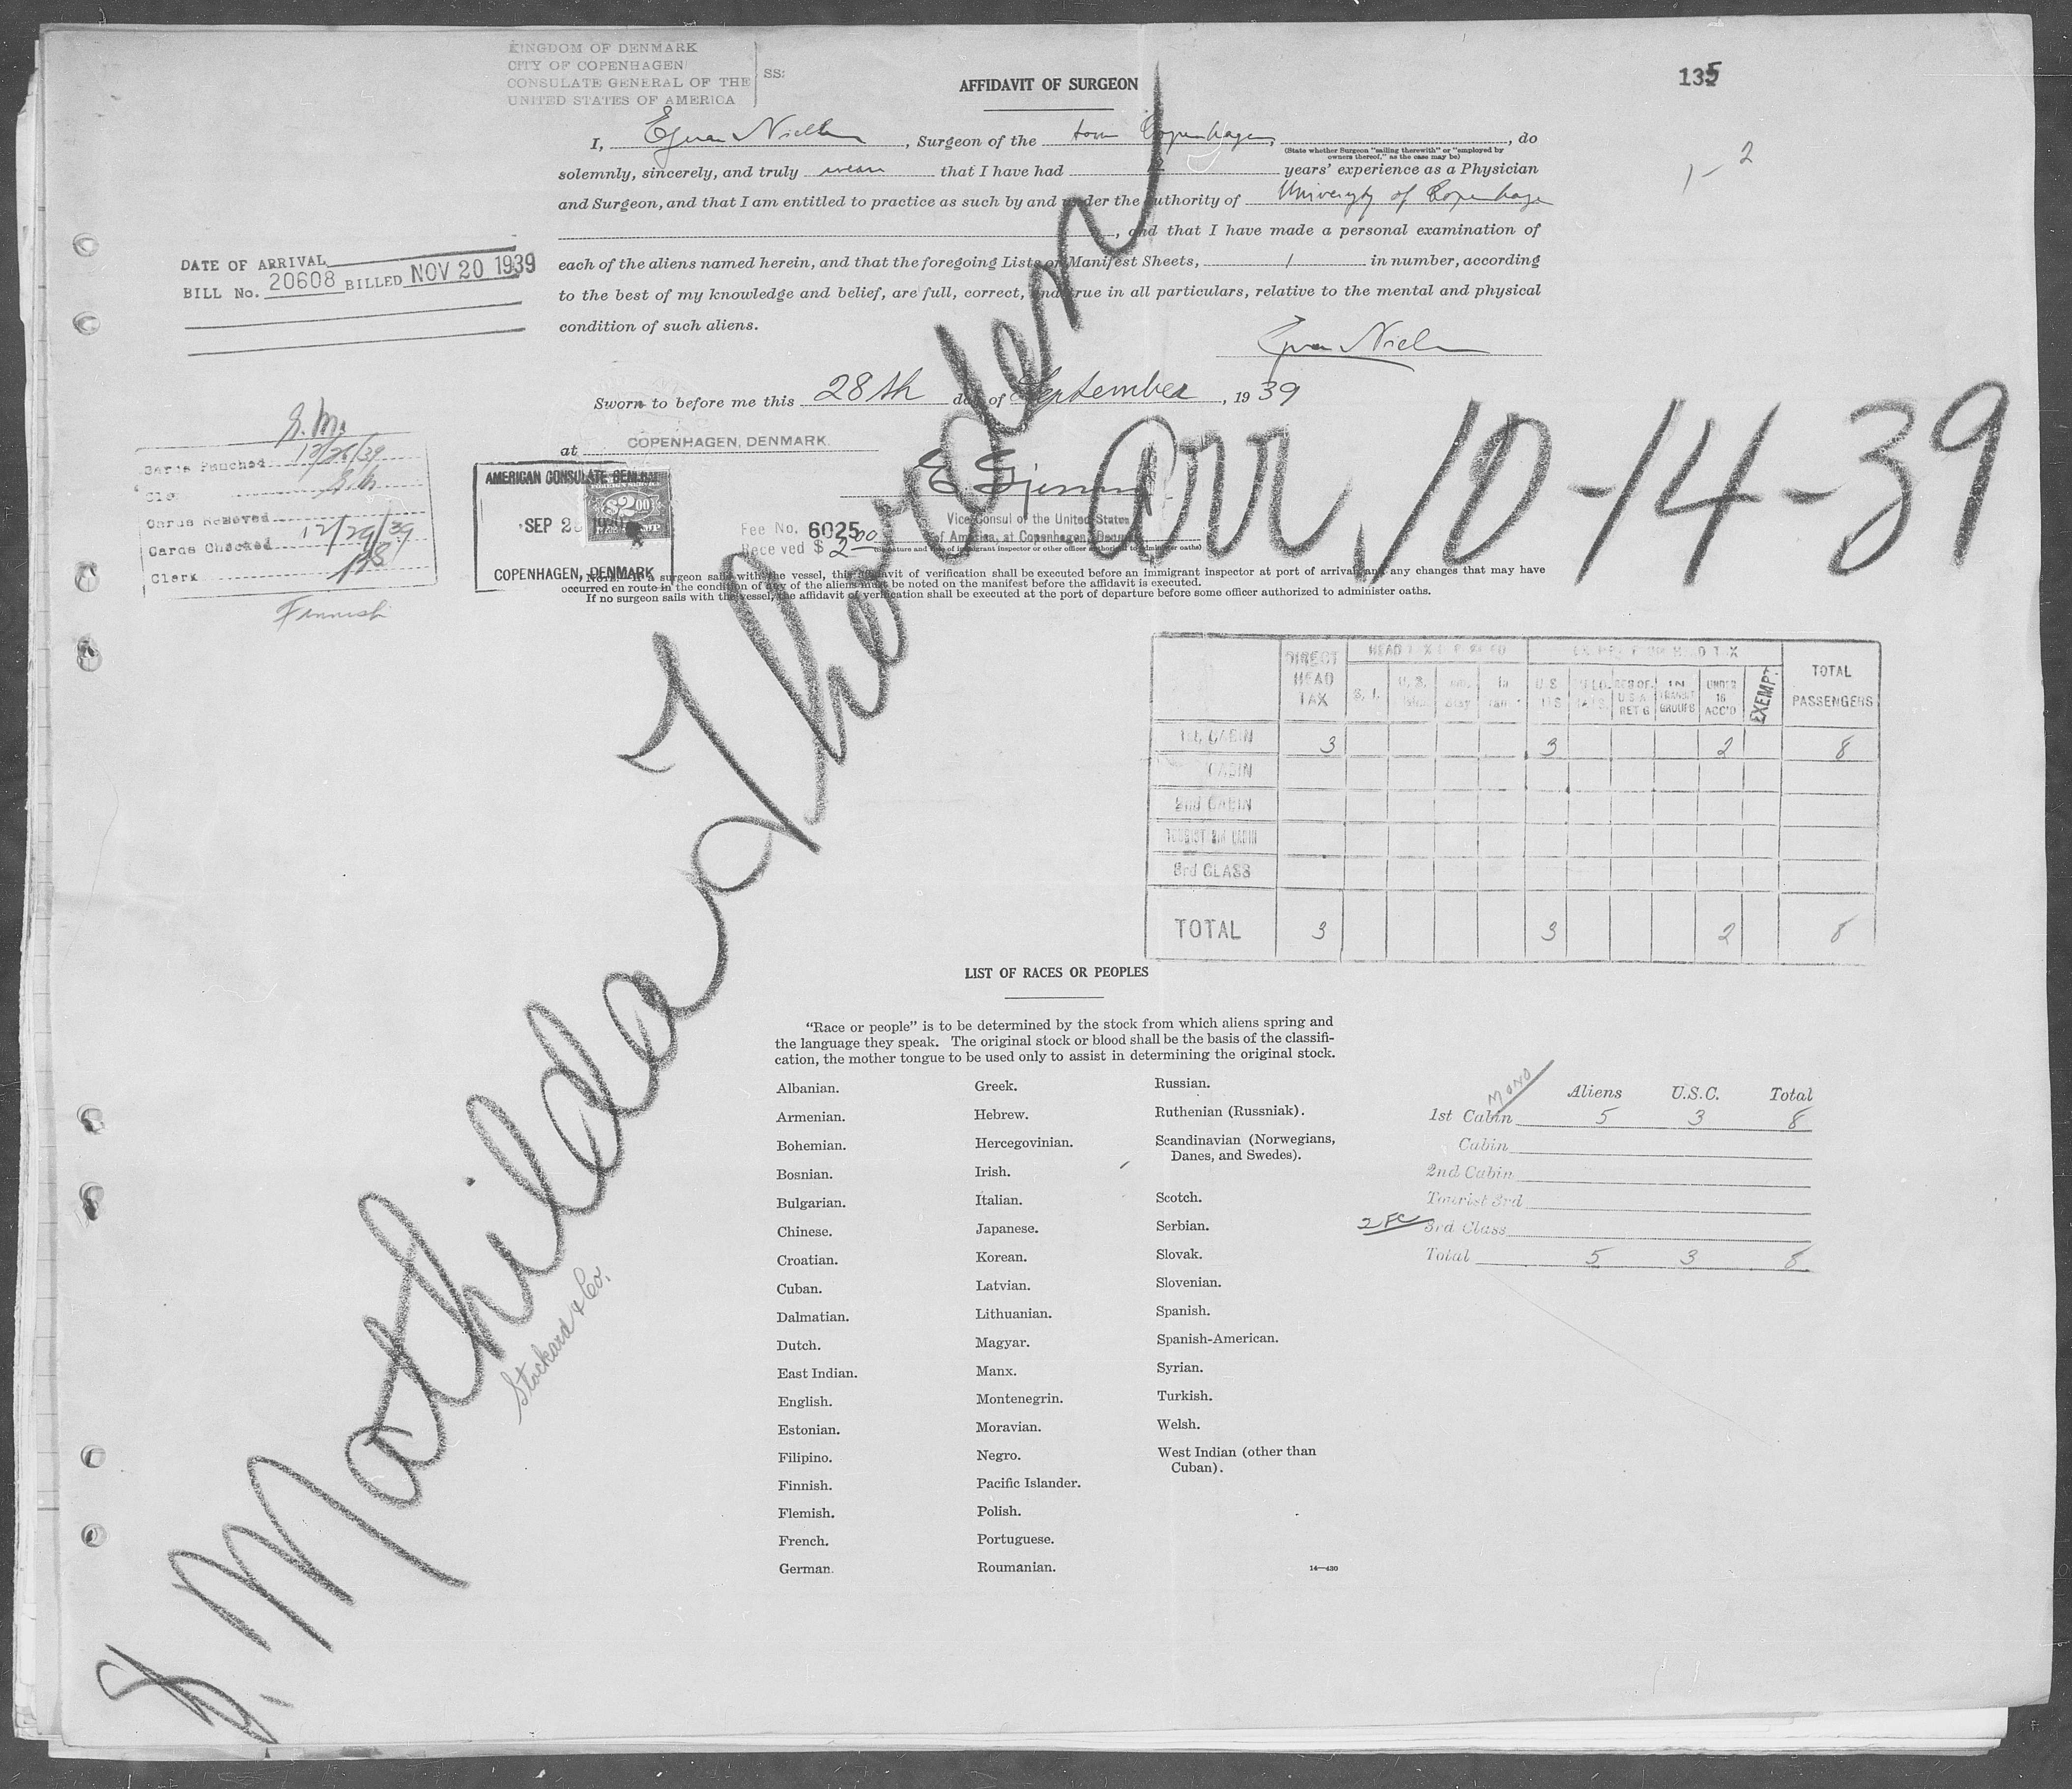 KINGDOM OF DENMARK
CITY OF COPENHAGEN
CONSULATE GENERAL OF THE
UNITED STATES OF AMERICA
SS:
AFFIDAVIT OF SURGEON
135
1-2
I, , Surgeon of the town Copenhagen, , do
(State whether Surgeon "sailing therewith" or "employed by
owners thereof," as the case may be)
solemnly, sincerely, and truly swear that I have had years' experience as a Physician
and Surgeon, and that I am entitled to practice as such by and under the authority of University of Copenhagen
, and that I have made a personal examination of
each of the aliens named herein, and that the foregoing Lists or Manifest Sheets, 1 in number, according
to the best of my knowledge and belief, are full, correct, and true in all particulars, relative to the mental and physical
condition of such aliens.
DATE OF ARRIVAL
BILL No. 20608 BILLED NOV 20 1939
Sworn to before me this 28th day of September, 1939
at COPENHAGEN, DENMARK.
arr. 10-14-39
S. Mathilda Thorden
Cards Punched 12/26/39
Clerk
Cards Removed
Cards Checked 12/29/39
Clerk
Finnish
AMERICAN CONSULATE GENERAL
SEP 28
$2.00
COPENHAGEN, DENMARK
Fee No. 6025
Received $ 2.00
Vice Consul of the United States
of America, at Copenhagen, Denmark
(Signature and title of immigrant inspector or other officer authorized to administer oaths)
NOTE.—If a surgeon sails with the vessel, this affidavit of verification shall be executed before an immigrant inspector at port of arrival, and any changes that may have
occurred en route in the condition of any of the aliens must be noted on the manifest before the affidavit is executed.
If no surgeon sails with the vessel, the affidavit of verification shall be executed at the port of departure before some officer authorized to administer oaths.
DIRECT HEAD TAX
HEAD TAX
EXEMPT FROM HEAD TAX
TOTAL PASSENGERS
S. I.
U.S.
RES OF U.S.A RET'G
IN TRANSIT GROUPS
UNDER 16 ACC'D
EXEMPT
1st CABIN 3 3 2 8
CABIN
2nd CABIN
TOURIST 3rd CABIN
3rd CLASS
TOTAL 3 3 2 8
LIST OF RACES OR PEOPLES
"Race or people" is to be determined by the stock from which aliens spring and
the language they speak. The original stock or blood shall be the basis of the classifi-
cation, the mother tongue to be used only to assist in determining the original stock.
Albanian.
Armenian.
Bohemian.
Bosnian.
Bulgarian.
Chinese.
Croatian.
Cuban.
Dalmatian.
Dutch.
East Indian.
English.
Estonian.
Filipino.
Finnish.
Flemish.
French.
German.
Greek.
Hebrew.
Hercegovinian.
Irish.
Italian.
Japanese.
Korean.
Latvian.
Lithuanian.
Magyar.
Manx.
Montenegrin.
Moravian.
Negro.
Pacific Islander.
Polish.
Portuguese.
Roumanian.
Russian.
Ruthenian (Russniak).
Scandinavian (Norwegians,
Danes, and Swedes).
Scotch.
Serbian.
Slovak.
Slovenian.
Spanish.
Spanish-American.
Syrian.
Turkish.
Welsh.
West Indian (other than
Cuban).
14—430
MONO
Aliens U.S.C. Total
1st Cabin 5 3 8
Cabin
2nd Cabin
Tourist 3rd
2 FC 3rd Class
Total 5 3 8
Stockard & Co.